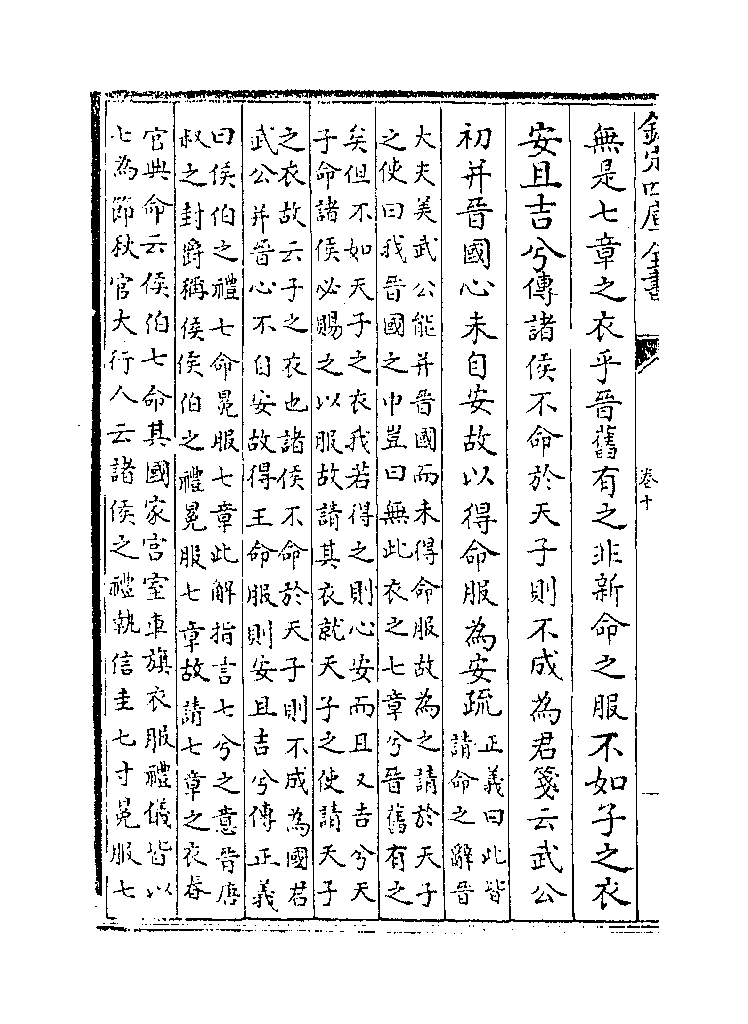 欽定四庫全書
卷十
無是七章之衣乎晉舊有之非新命之服不如子之衣
安且吉兮傳諸侯不命於天子則不成為君箋云武公
初并晉國心未自安故以得命服為安疏
正義曰此皆
請命之辭晉
大夫美武公能并晉國而未得命服故為之請於天子
之使曰我晉國之中豈曰無此衣之七章兮晉舊有之
矣但不如天子之衣我若得之則心安而且又吉兮天
子命諸侯必賜之以服故請其衣就天子之使請天子
之衣故云子之衣也諸侯不命於天子則不成為國君
武公并晉心不自安故得王命服則安且吉兮傳正義
曰侯伯之禮七命冕服七章此解指言七兮之意晉唐
叔之封爵稱侯侯伯之禮冕服七章故請七章之衣春
官典命云侯伯七命其國家宮室車旗衣服禮儀皆以
七為節秋官大行人云諸侯之禮執信圭七寸冕服七